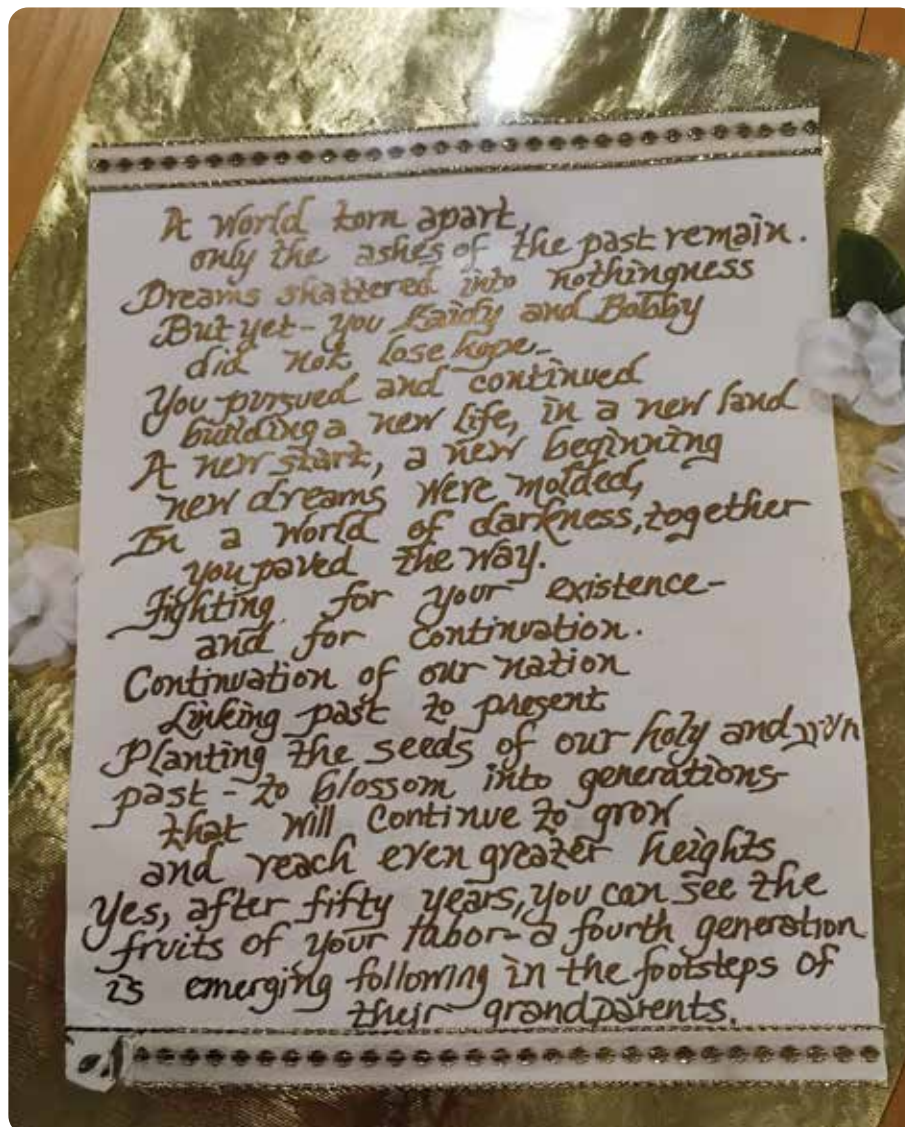 A World torn apart,
only the ashes of the past remain.
Dreams shattered into nothingness
But yet - you Zaidy and Bobby
did not lose hope -
You pursued and continued
building a new life, in a new land
A new start, a new beginning
new dreams were molded,
In a world of darkness, together
you paved the way.
Fighting for your existence -
and for continuation.
Continuation of our nation
Linking past to present
Planting the seeds of our holy and
past - to blossom into generations -
that will continue to grow
and reach even greater heights
Yes, after fifty years, you can see the
fruits of your labor - a fourth generation
is emerging following in the footsteps of
their grandparents.